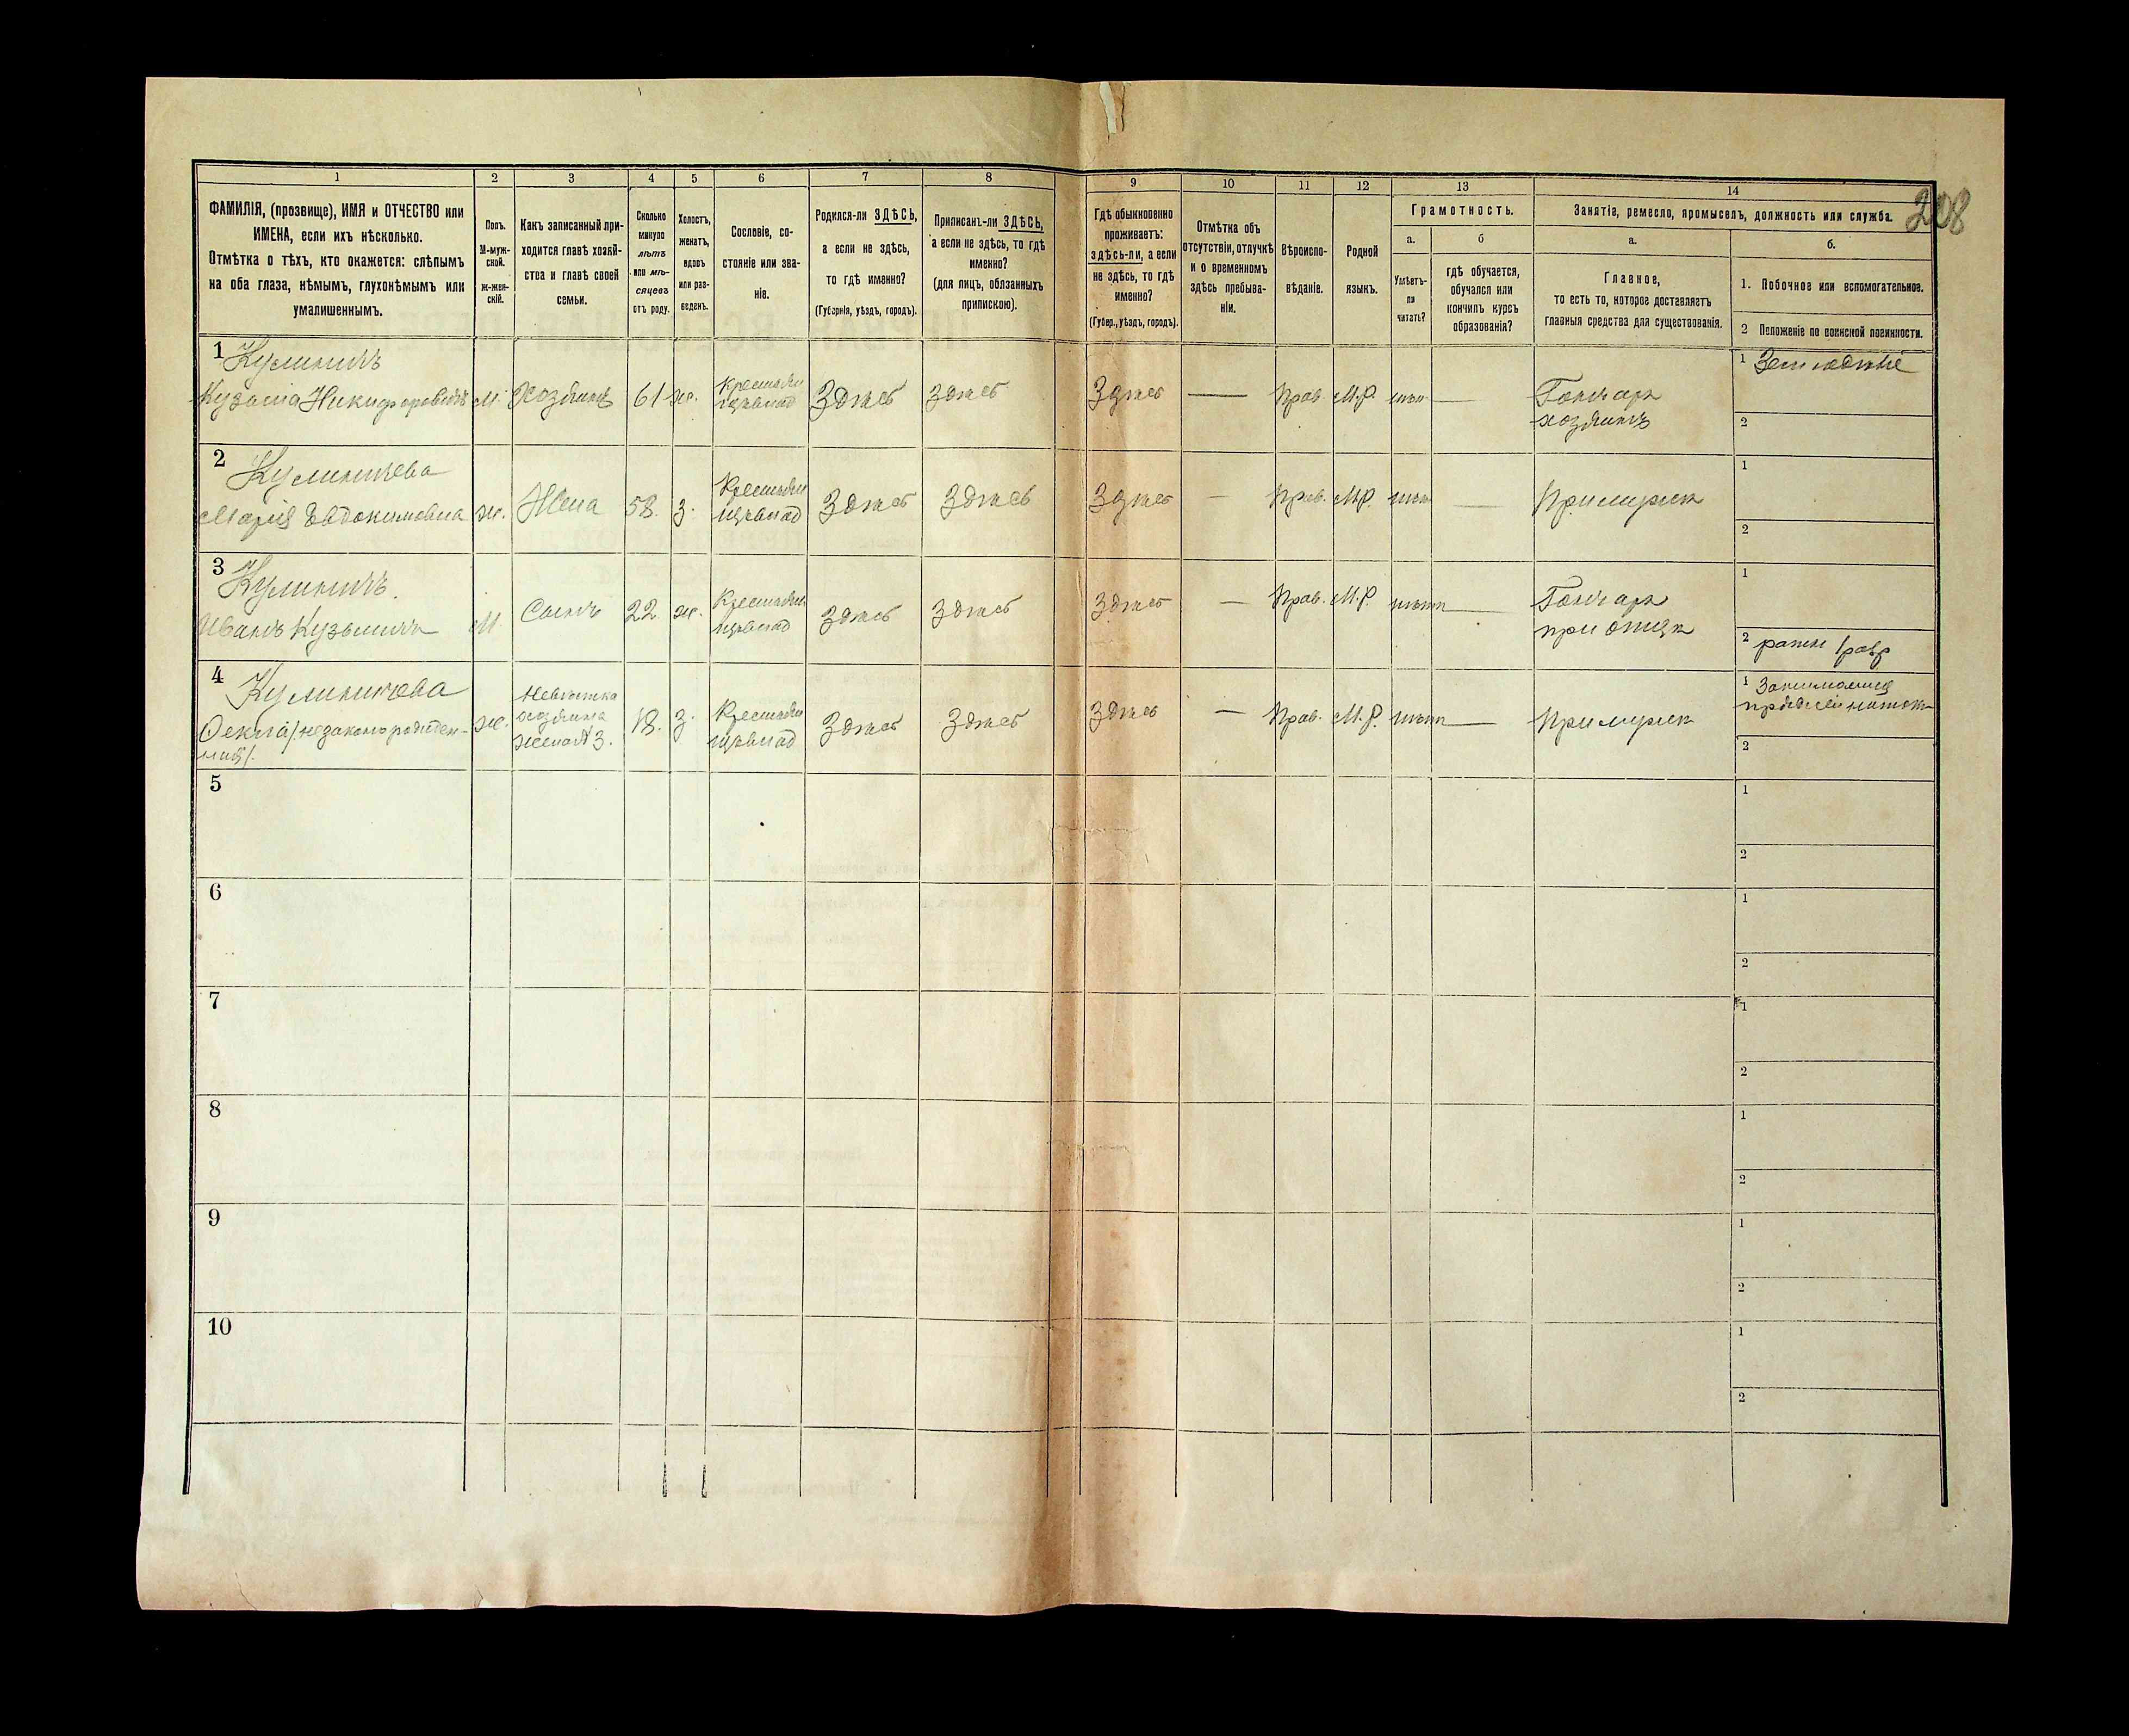 208
1
2
3
4
5
6
7
8
9
10
11
12
13
14
ФАМИЛІЯ, (прозвище), ИМЯ и ОТЧЕСТВО или
ИМЕНА, если ихъ нѣсколько.
Отмѣтка о тѣхъ, кто окажется: слѣпымъ
на оба глаза, нѣмымъ, глухонѣмымъ или
умалишеннымъ.
Полъ.
М-муж-
ской.
Ж-жен-
скій.
Какъ записанный при-
ходится главѣ хозяй-
ства и главѣ своей
семьи.
Сколько
минуло
лѣтъ
или мѣ-
сяцевъ
отъ роду.
Холостъ,
женатъ,
вдовъ
или раз-
веденъ.
Сословіе, со-
стояніе или зва-
ніе.
Родился-ли ЗДѢСЬ,
а если не здѣсь,
то гдѣ именно?
(Губернія, уѣздъ, городъ).
Приписанъ-ли ЗДѢСЬ,
а если не здѣсь, то гдѣ
именно?
(для лицъ, обязанныхъ
припискою).
Гдѣ обыкновенно
проживаетъ:
здѣсь-ли, а если
не здѣсь, то гдѣ
именно?
(Губер., уѣздъ, городъ).
Отмѣтка объ
отсутствіи, отлучкѣ
и о временномъ
здѣсь пребыва-
ніи.
Вѣроиспо-
вѣданіе.
Родной
языкъ.
Грамотность.
а.
Умѣетъ-
ли
читать?
б
гдѣ обучается,
обучался или
кончилъ курсъ
образованія?
Занятіе, ремесло, промыселъ, должность или служба.
а.
Главное,
то есть то, которое доставляетъ
главныя средства для существованія.
б.
1. Побочное или вспомогательное.
2 Положеніе по воинской повинности.
1 Кулиничъ
Кузьма Никифоровичъ
м.
Хозяинъ
61
ж.
Крестьян
Здѣсь
Здѣсь
Здѣсь
—
Прав.
М.Р.
нѣт
—
Гончаръ
хозяинъ
1 Земледѣліе
2
2 Кулиничева
Марія Евдокимовна
ж.
Жена
58.
з.
Крестьян
Здѣсь
Здѣсь
Здѣсь
—
Прав.
М.Р.
нѣт
—
При мужѣ
1
2
3 Кулиничъ.
Иванъ Кузьмичъ
М
Сынъ
22
ж.
Крестьян
Здѣсь
Здѣсь
Здѣсь
—
Прав.
М.Р.
нѣт
—
Гончаръ
при отцѣ
1
2
4 Кулиничева
Фекла (незаконорожден-
ная).
ж.
Невѣстка
хозяина
жена № 3.
18.
з.
Крестьян
Здѣсь
Здѣсь
Здѣсь
—
Прав.
М.Р.
нѣт
—
При мужѣ
1
2
5
1
2
6
1
2
7
1
2
8
1
2
9
1
2
10
1
2